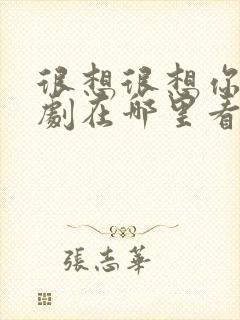 很想很想你
劇在哪里看
張志華